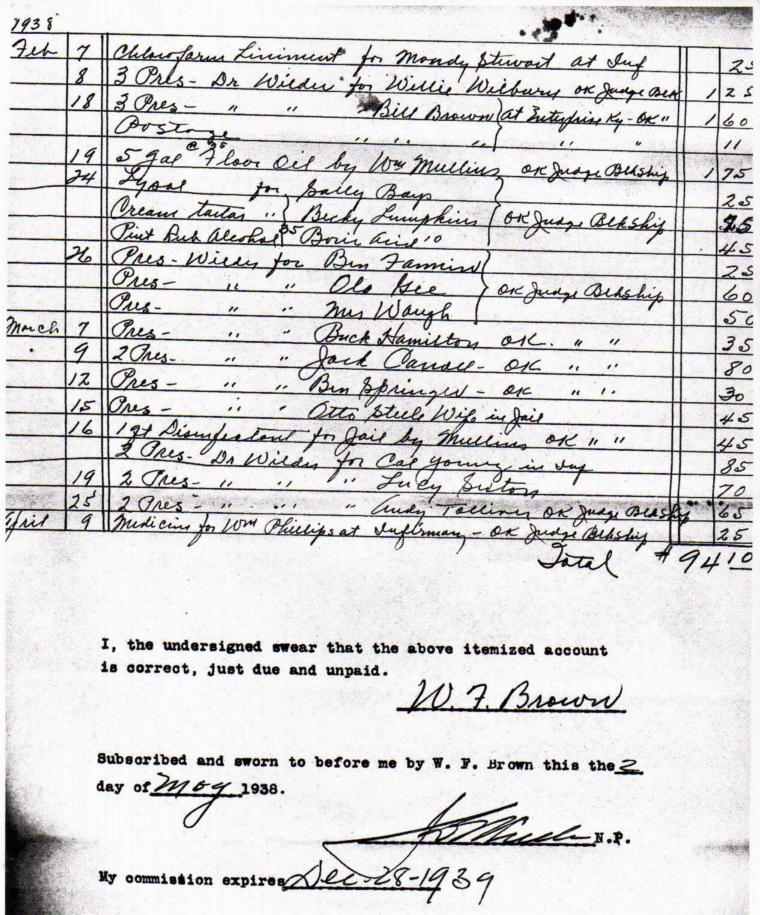 1938
Feb 7 Chloroform Liniment for Mandy Stewart at Inf 25
8 3 Pres- Dr Wilder for Willie Wilburn OK Judge Blk 1 25
18 3 Pres- " " Bill Brown } at Enterprise Ky- OK " 1 60
Postage " " " } " " " 11
19 5 Gal @ 35 Floor Oil by Wm Mullins OK Judge Blkship 1 75
24 Lysol for Sally Bays 25
Cream tartar " } Becky Lumpkins } OK Judge Blkship 25
Pint Rub Alcohol 35 Boric Acid 10 45
26 Pres- Wilder for Ben Fannin } 25
Pres- " " Ola Gee } OK Judge Blkship 60
Pres- " " Mrs Waugh } 50
March 7 Pres- " " Buck Hamilton OK. " " 35
9 2 Pres- " " Jack - OK " " 80
12 Pres- " " Ben Springer - OK " " 30
15 Pres- " " Otto Steele Wife in Jail 45
16 1 qt Disinfectant for Jail by Mullins OK " " 45
3 Pres- Dr Wilder for Cal Young in Inf 85
19 2 Pres- " " " Lucy 70
25 2 Pres- " " " Andy OK Judge Blkship 65
April 9 Medicine for Wm Phillips at Infirmary - OK Judge Blkship 25
Total $94 10
I, the undersigned swear that the above itemized account
is correct, just due and unpaid.
W. F. Brown
Subscribed and sworn to before me by W. F. Brown this the 2
day of May 1938.
N.P.
My commission expires Dec-28-1939